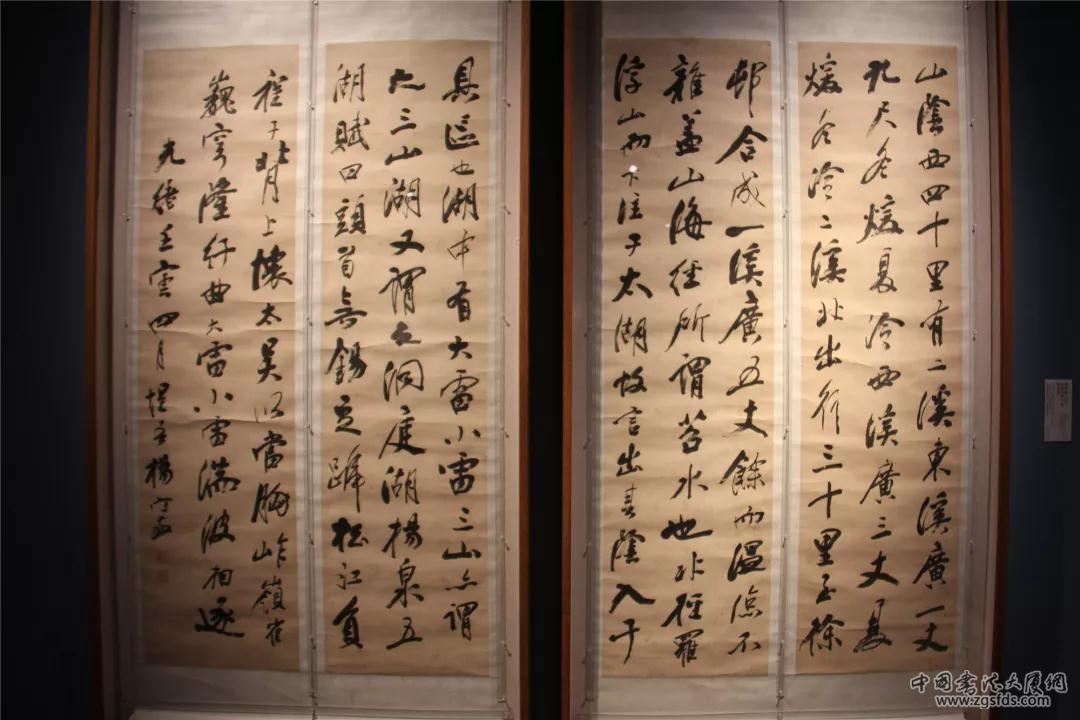 山陰西四十里有二溪東溪廣一丈
九尺冬煖夏冷西溪廣三丈夏
煖冬冷二溪北出行三十里至徐
邨合成一溪廣五丈餘而溫涼不
雜蓋山海經所謂苕水也北徑羅
浮山而下注于太湖故言出其陰入于
具區也湖中有大雷小雷三山亦謂
之三山湖又謂之洞庭湖楊泉五
湖賦曰頭首無錫足蹄松江負
程于背上懷太吳以當胸岞嶺崔
巍穹隆紆曲大雷小雷湍波相逐
光緒壬寅四月惺吾楊守敬
中國書法大廈網
www.zgsfds.com